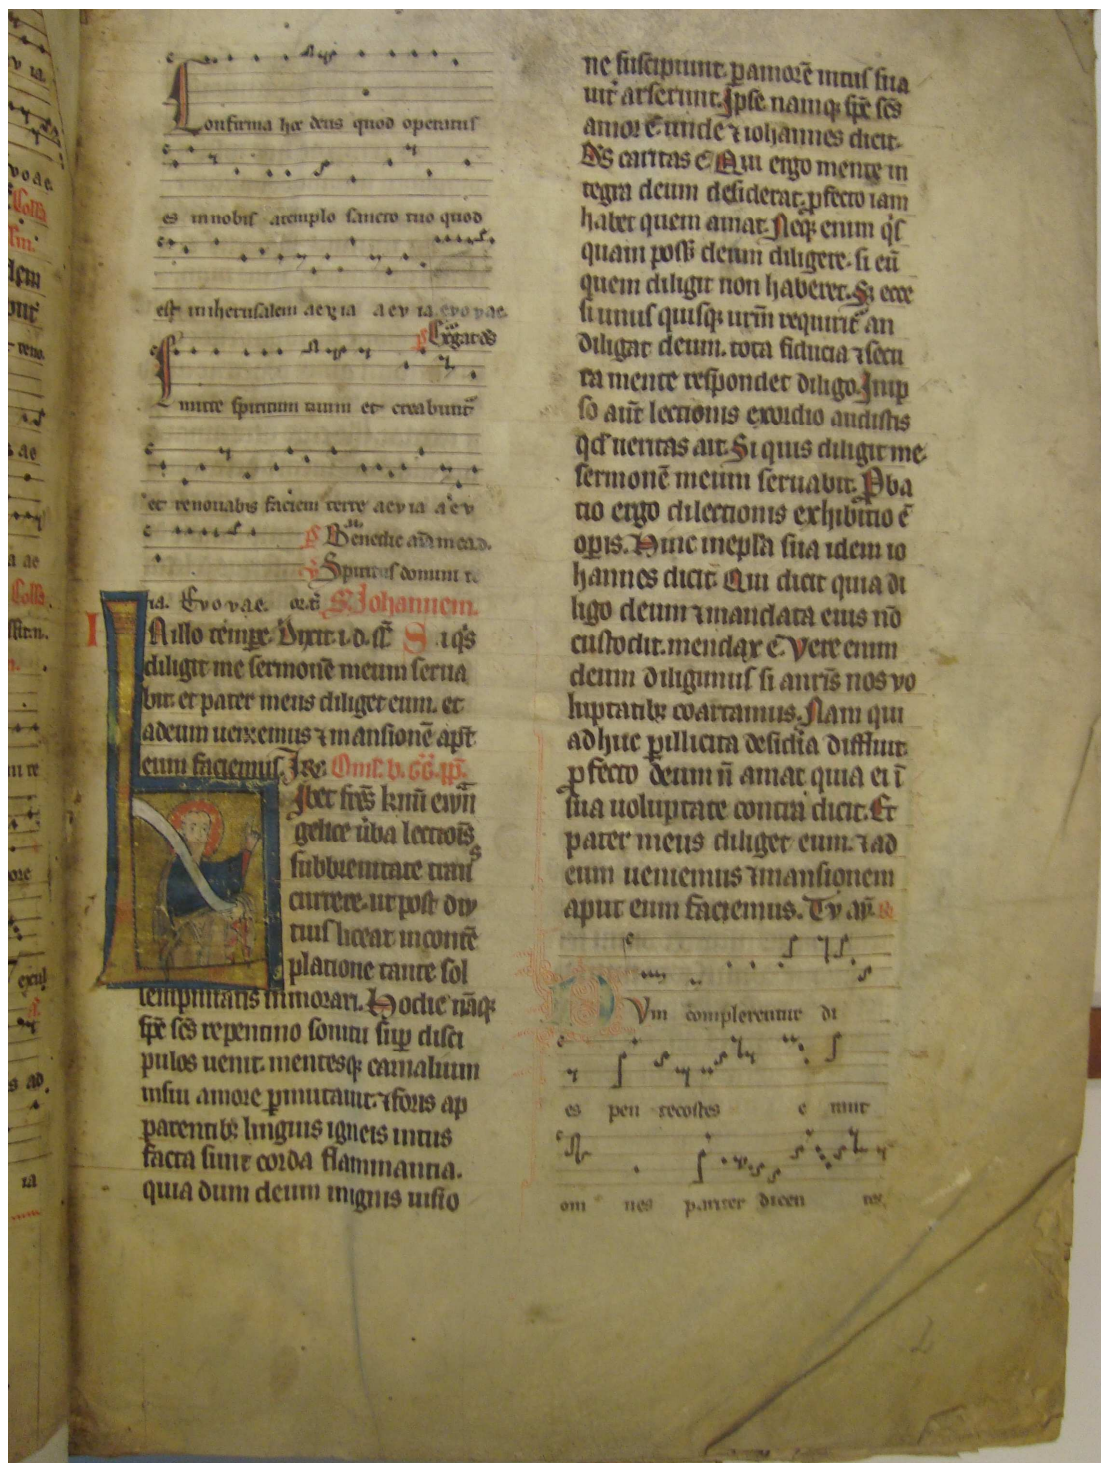 Confirma hoc deus quod operatus
es in nobis a templo sancto tuo quod
est in iherusalem aevia aevia evovae.
Exgat ds
Emitte spiritum tuum et creabunt̄
et renovabis faciem terre aevia aev
ps Benedic aīa mea d.
Spiritus domini r.
ia. Evovae. S. Johannem.
IN illo tempe. Dixit i. d. s. Si qͥs
diligit me sermonē meum serua
bit. et pater meus diliget eum. et
ad eum ueniemus ⁊ mansionē apt
eum faciemus. Omel. b. GG. pp.
Libet frēs km̄i ewn̄
gelice ūba lectiōis
sub breuitate tran
currere. ut post diu
tius liceat in contē
platione tante sol
lempnitatis inmorari. Hodie nāqꝫ
spc̄ scs̄ repentino sonitu suꝑ disci
pulos uenit. mentesqꝫ carnalium
in sui amore ꝑmutauit. ⁊ foris ap
parentibꝫ linguis igneis intus
facta sunt corda flammantia.
quia dum deum in ignis uisio
ne susceperunt. ꝑ amorē intus sua
uit̄ arserunt. Ipse namqꝫ spc̄ scs̄
amor ē. unde ⁊ iohannes dicit.
Ds̄ caritas ē. Qui ergo mente in
tegra deum desiderat. ꝓfecto iam
habet quem amat. Neqꝫ enim qͥs
quam posset deum diligere. si eū
quem diligit non haberet. Sꝫ ecce
si unus quisqꝫ urm̄ requirit̄ an
diligat deum. tota fiducia ⁊ secu
ra mente respondet diligo. In ip
so aūt lectionis exordio audistis
qd̄ ueritas ait. Si quis diligit me.
sermonē meum seruabit. Proba
tio ergo dilectionis exhibitio ē
opis. Hinc in epl̄a sua idem io
hannes dicit. Qui dicit quia di
ligo deum ⁊ mandata eius nō
custodit. mendax ē. Vere enim
deum diligimus si a nr̄is nos uo
luptatibꝫ coartamus. Nam qui
adhuc ꝑ illicita desidia diffluit.
ꝓfecto deum n̄ amat quia ei ī
sua uoluptate contra dicit. Et
pater meus diliget eum. ⁊ ad
eum ueniemus ⁊ mansionem
aput eum faciemus. Tu aū. R
Dum complerentur di
es pen tecostes e rant
om nes pariter dicen tes.